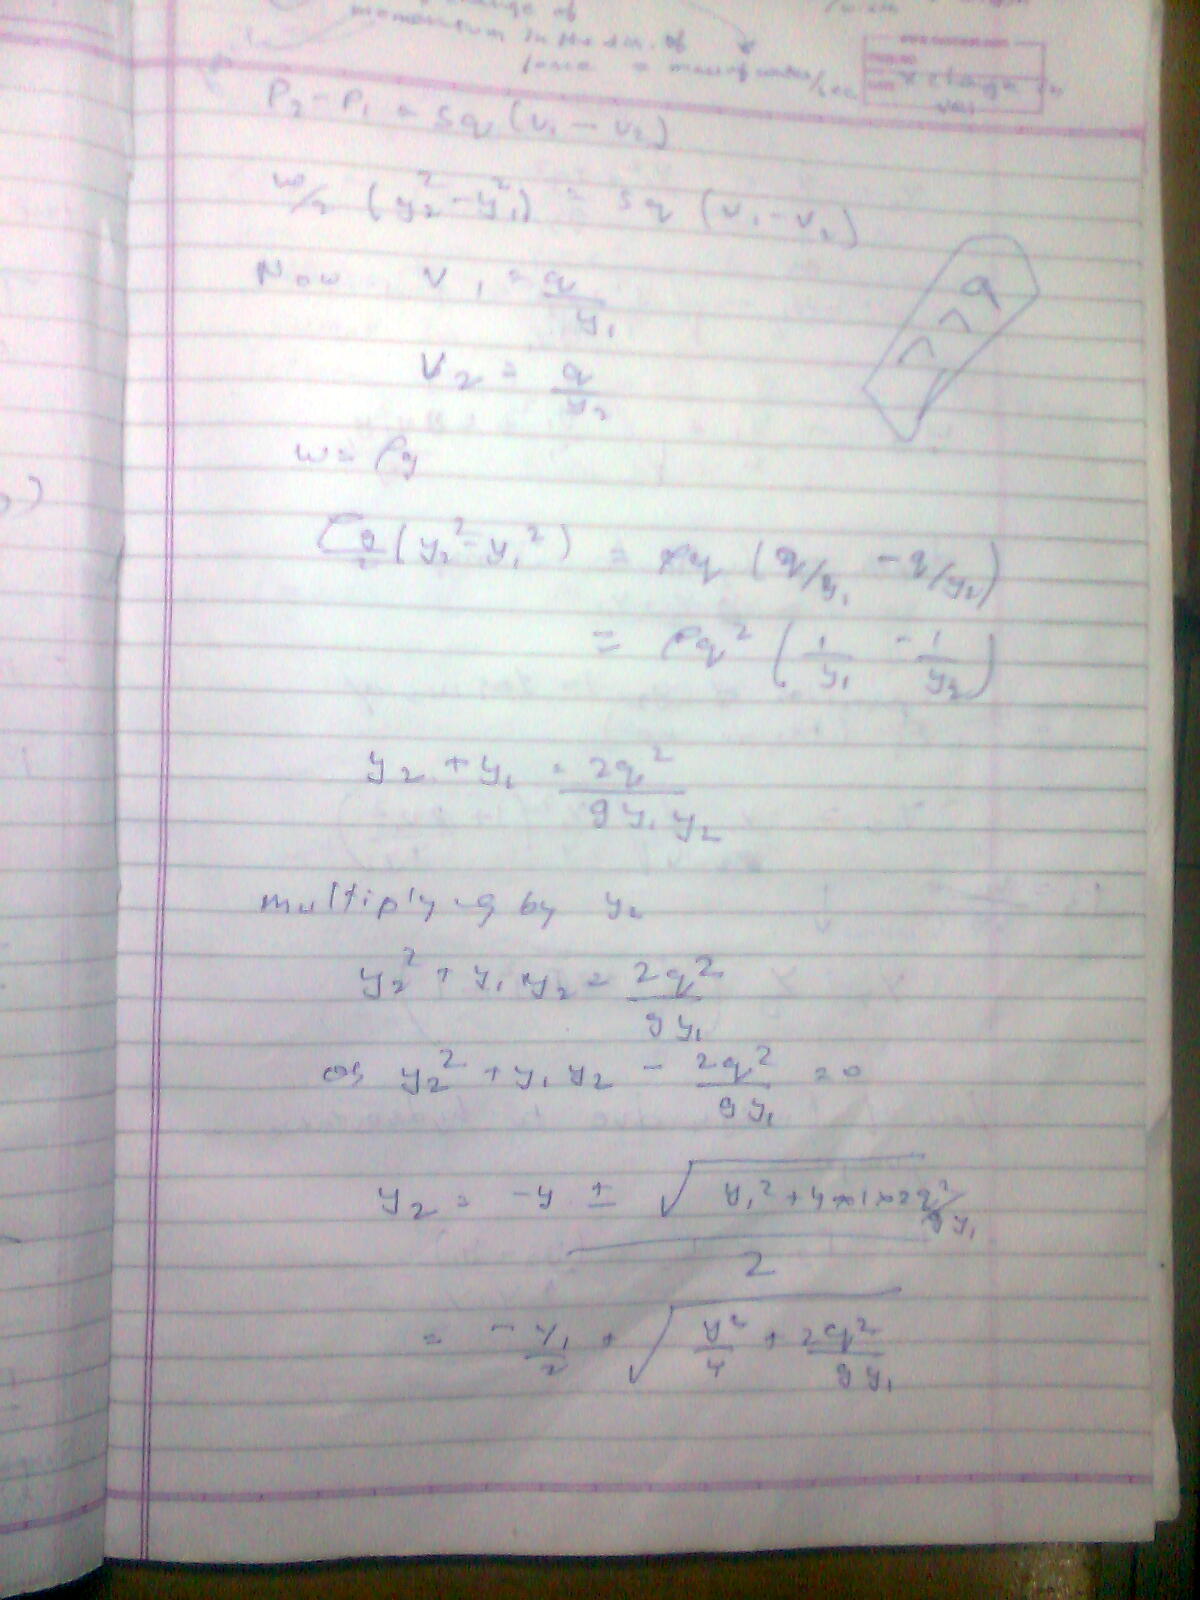 change of
momentum in the dirn. of
force = mass of water/sec
x change in
vel
P₂ - P₁ = sq (v₁ - v₂)
w/2 (y₂² - y₁²) = sq (v₁ - v₂)
Now v₁ = q/y₁
v₂ = q/y₂
q
w = ρg
ρg/2 (y₂² - y₁²) = ρq (q/y₁ - q/y₂)
= ρq² (1/y₁ - 1/y₂)
y₂ + y₁ = 2q²/gy₁y₂
multiplying by y₂
y₂² + y₁ y₂ = 2q²/gy₁
or y₂² + y₁ y₂ - 2q²/gy₁ = 0
y₂ = -y ± √(y₁² + 4×1×2q²/gy₁) / 2
= -y₁/2 + √(y²/4 + 2q²/gy₁)